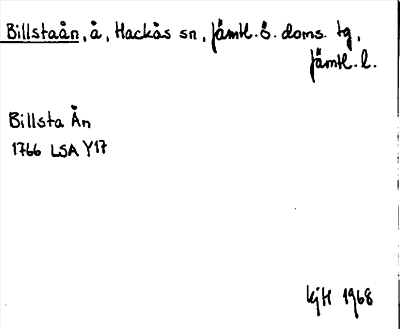 Billstaån, å, Hackås sn, Jämtl. ö. doms. tg,
Jämtl. l.
Billsta Ån
1766 LSA Y17
kjH 1968